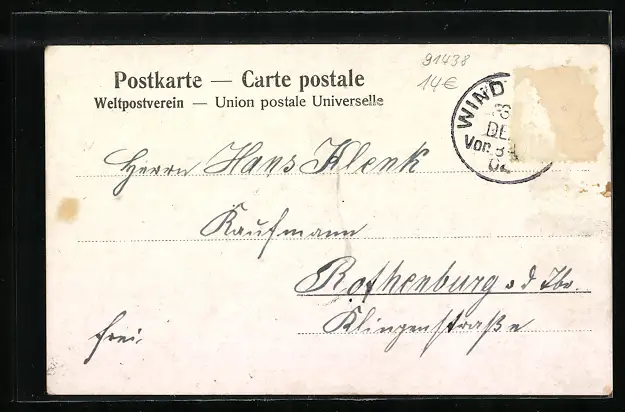 91438
14€
Postkarte — Carte postale
Weltpostverein — Union postale Universelle
WIND
DE
Vor. 8-
02
Herrn Hans Klenk
Kaufmann
Rothenburg o d Tbr.
Klingenstraße
frei.